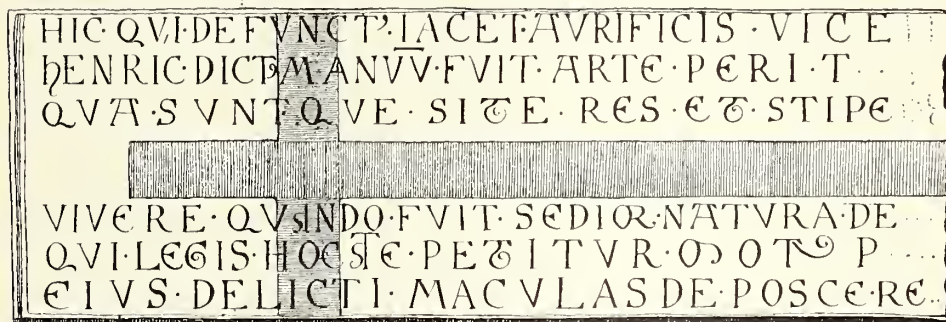 HIC·QVI·DEFVNCT'·IACET·AVRIFICIS·VICE
HENRIC·DICT'·MANVV·FVIT·ARTE·PERI·T
QVA·SVNT·QVE·SITE·RES·ET·STIPE
VIVERE·QVSINDO·FVIT·SEDIOR·NATVRA·DE
QVI·LEGIS·HOC STE·PETITVR·MOT9 P
EIVS·DELICTI·MACVLAS·DE·POSCE·RE